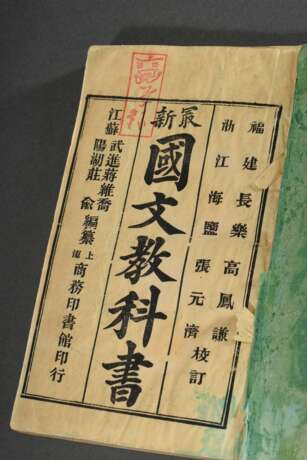 福建長樂高鳳謙
浙江海鹽張元濟校訂
最新
國文教科書
江蘇武進蔣維喬
陽湖莊俞編纂
上海商務印書館印行